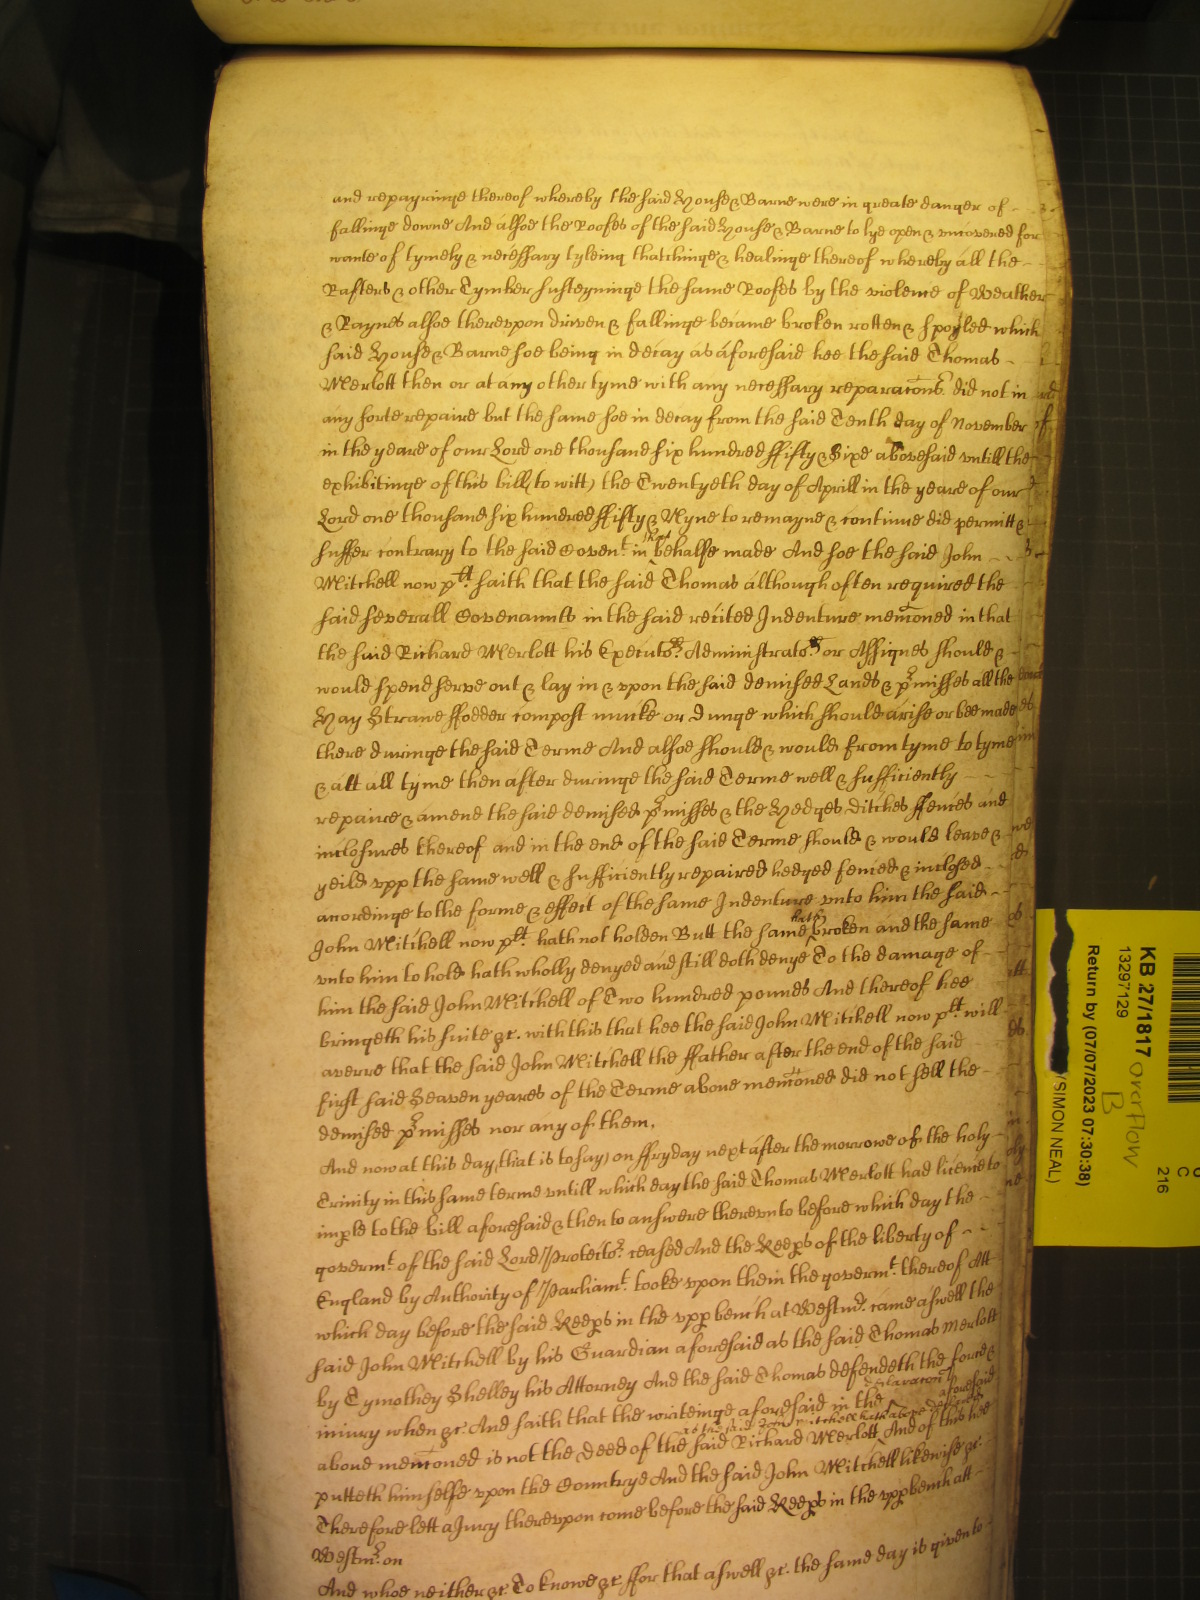 and repayringe thereof whereby the said House & Barne were in greate danger of
fallinge downe And alsoe the Roofes of the said House & Barne to lye open & uncovered for
wante of tymely & necessary tyleing thatchinge & healinge thereof whereby all the
Rafters & other Tymber susteyninge the same Roofes by the violence of Weather
& Raynes alsoe therevpon driven & fallinge became broken rotten & spoyled which
said House & Barne soe being in decay as aforesaid hee the said Thomas
Merlott then or at any other tyme with any necessary reparacons did not in
any sorte repaire but the same soe in decay from the said Tenth day of November
in the yeare of our Lord one thousand six hundred ffifty & Sixe abovesaid vntill the
exhibitinge of this bill (to witt) the Twentyeth day of Aprill in the yeare of our
Lord one thousand six hundred ffifty & Nyne to remayne & continue did permitt &
suffer contrary to the said Covent. in that behalfe made And soe the said John
Mitchell now plt. saith that the said Thomas although often required the
said severall Covenannts in the said recited Indenture menconed in that
the said Richard Merlott his Executors Administrators or Assignes should &
would spend serve out & lay in & vpon the said demised Lands & pmisses all the
Hay Strawe ffodder compost mucke or dunge which should arise or bee made
there duringe the said Terme And alsoe should & would from tyme to tyme
& att all tyme then after duringe the said Terme well & sufficiently
repaire & amend the said demised pmisses & the Hedges ditches ffences and
inclosures thereof and in the end of the said Terme should & would leave &
yeild vpp the same well & sufficiently repaired hedged fenced & inclosed
accordinge to the forme & effect of the same Indenture vnto him the said
John Mitchell now plt. hath not holden Butt the same hath broken and the same
vnto him to hold hath wholly denyed and still doth denye To the damage of
him the said John Mitchell of Two hundred pounds And thereof hee
bringeth his suite &c. with this that hee the said John Mitchell now plt. will
averre that the said John Mitchell the ffather after the end of the said
first said Seaven yeares of the Terme above menconed did not sell the
demised pmisses nor any of them.
And now at this day (that is to say) on ffryday next after the morrowe of the holy
Trinity in this same terme vntill which day the said Thomas Merlott had licence to
imple to the bill aforesaid & then to answere therevnto before which day the
governmt. of the said Lord Protector ceased And the Keeps of the liberty of
England by Authority of Parliamt. tooke vpon them the governmt. thereof Att
which day before the said Keeps in the vpp bench at Westmr. came aswell the
said John Mitchell by his Guardian aforesaid as the said Thomas Merlott
by Tymothey Shelley his Attorney And the said Thomas defendeth the force &
iniury when &c. And saith that the writeinge aforesaid in the declaracon aforesaid
above menconed is not the deed of the said Richard Merlott as the said John Mitchell hath above declared And of this hee
putteth himselfe vpon the Countrye And the said John Mitchell likewise &c.
Therefore lett a Jury therevpon come before the said Keeps in the vpp bench att
Westmr. on
And whoe neither &c. To knowe &c. ffor that aswell &c. the same day is given to
KB 27/1817 overflow
B
13297129
Return by (07/07/2023 07:30:38)
SIMON NEAL)
C
216